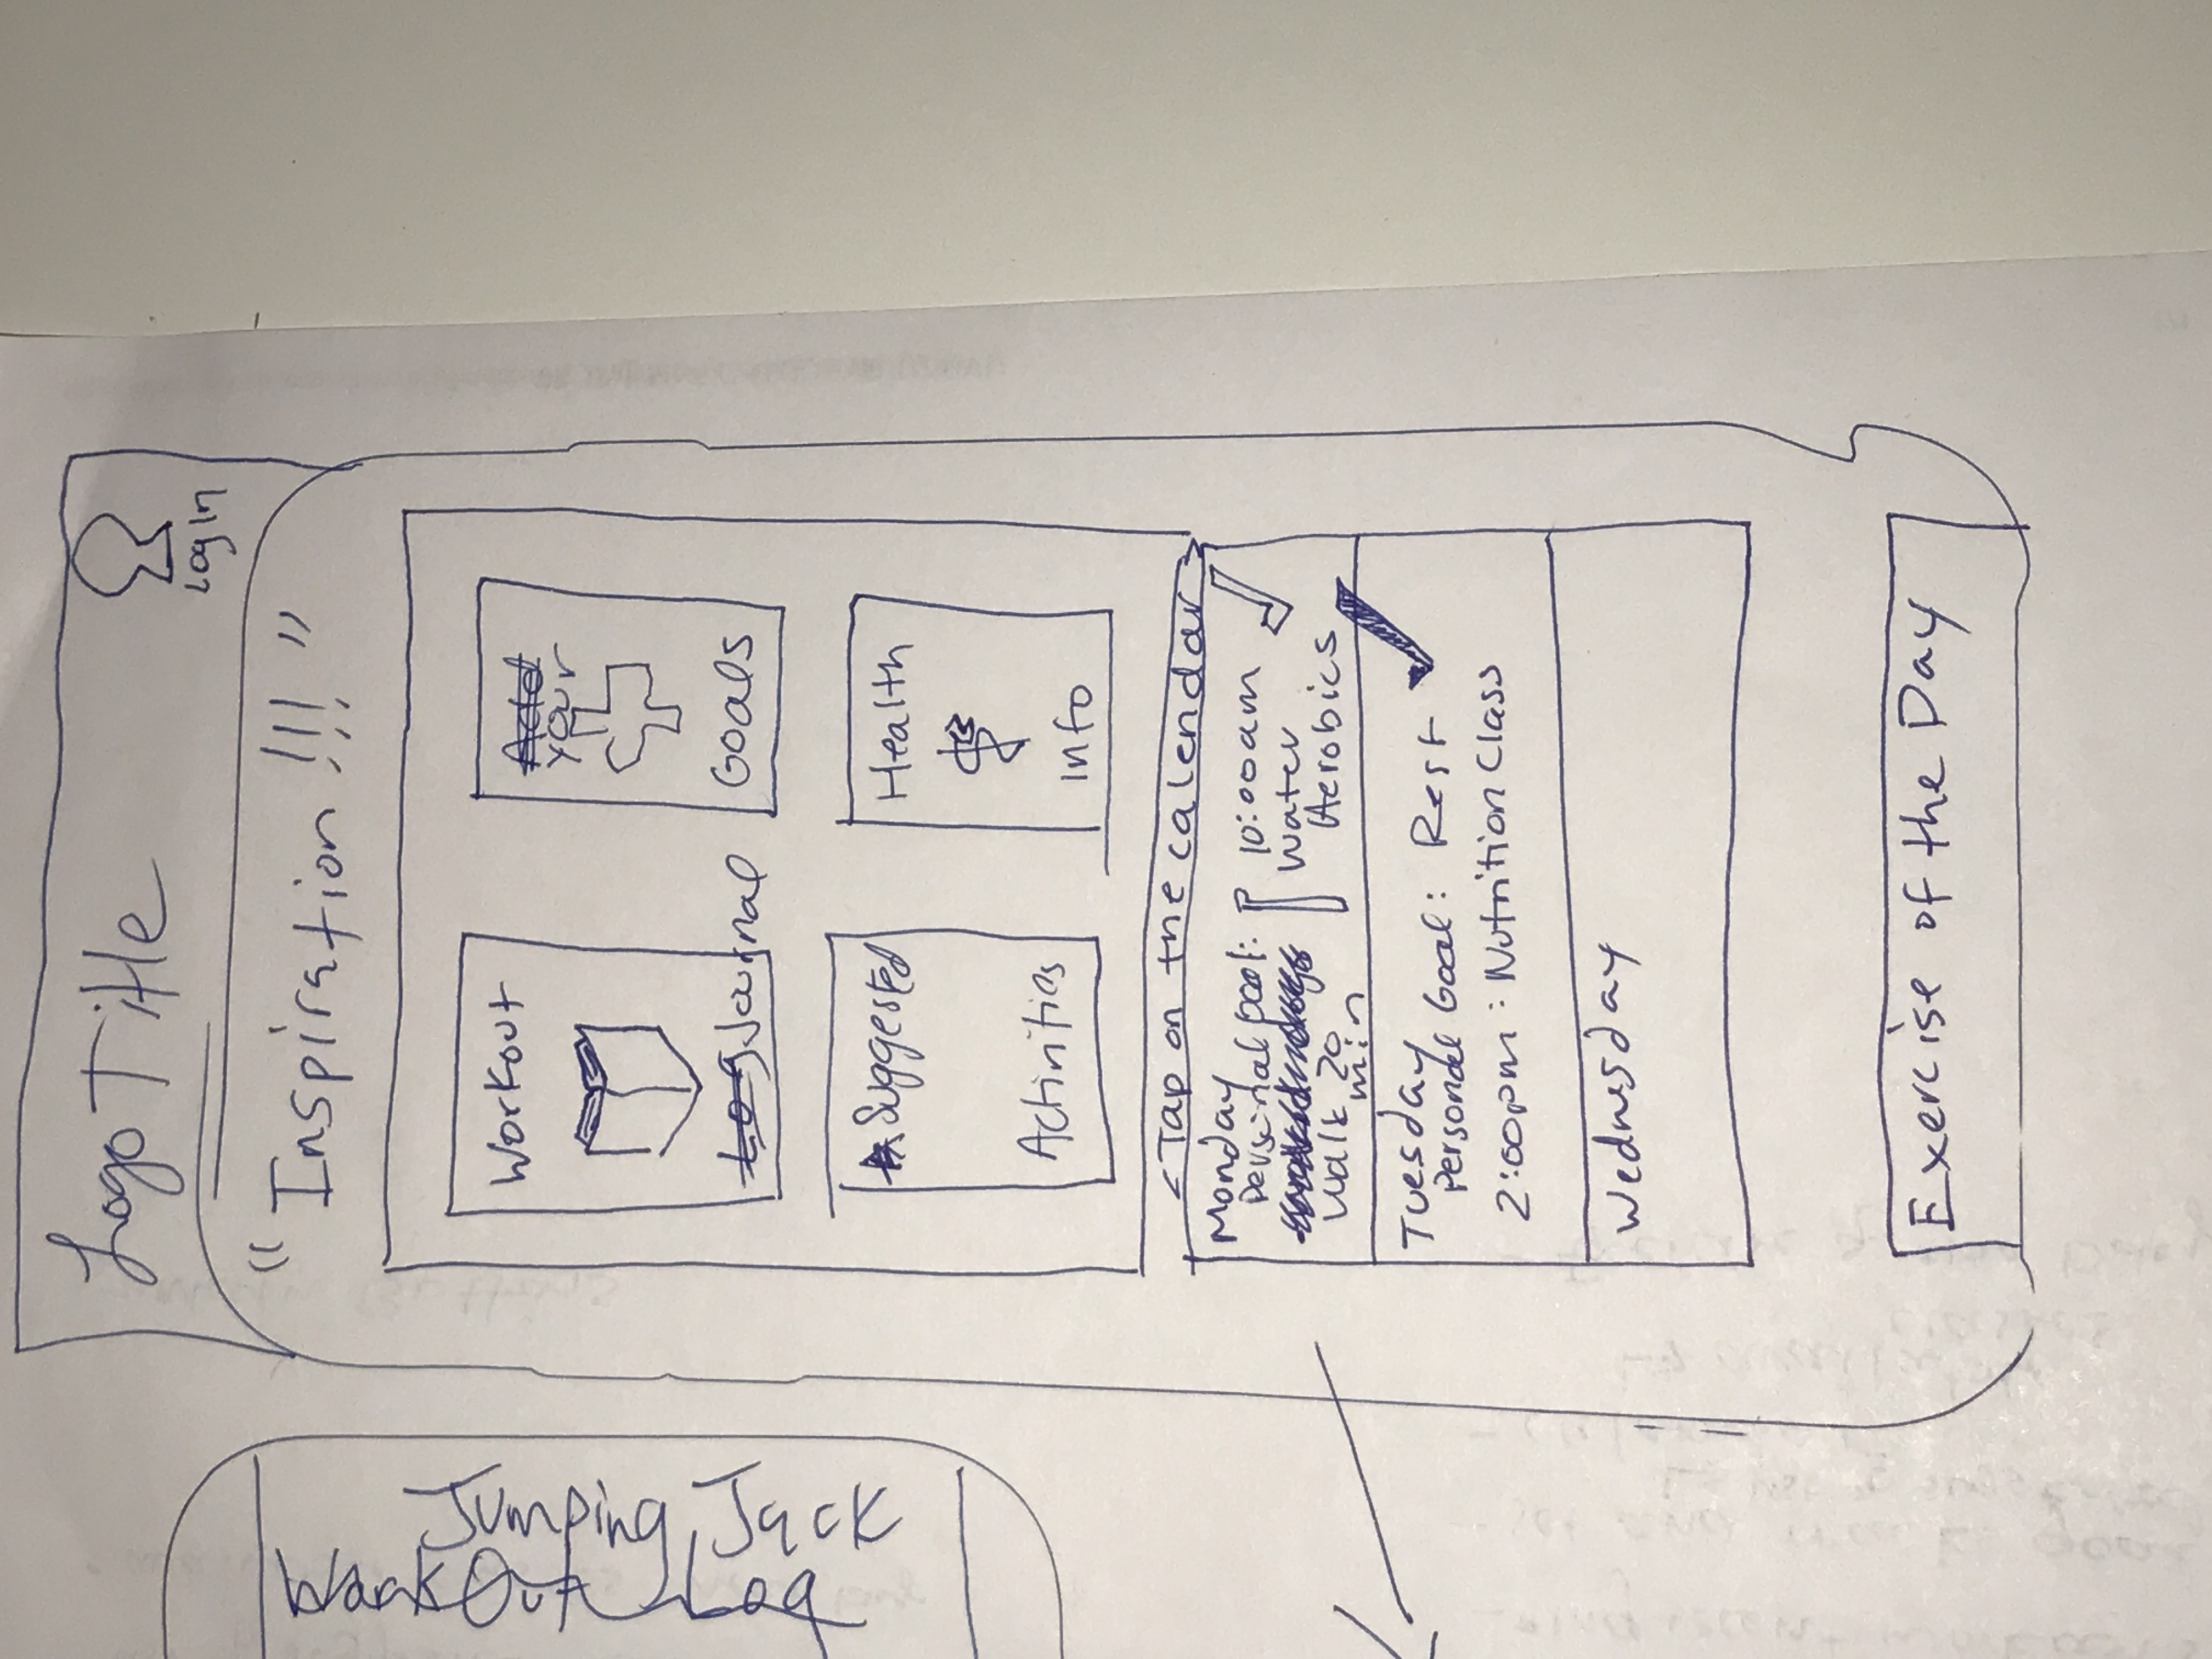 Logo Title
Log In
"Inspiration !!!"
Workout
Log Journal
Add
your
Goals
Suggested
Activities
Health
Info
<Tap on the calendar>
Monday
Personal goal:
Walk 20
min
10:00am
Water
Aerobics
Tuesday
Personal Goal: Rest
2:00pm: Nutrition Class
Wednesday
Exercise of the Day
Jumping Jack
Workout Log